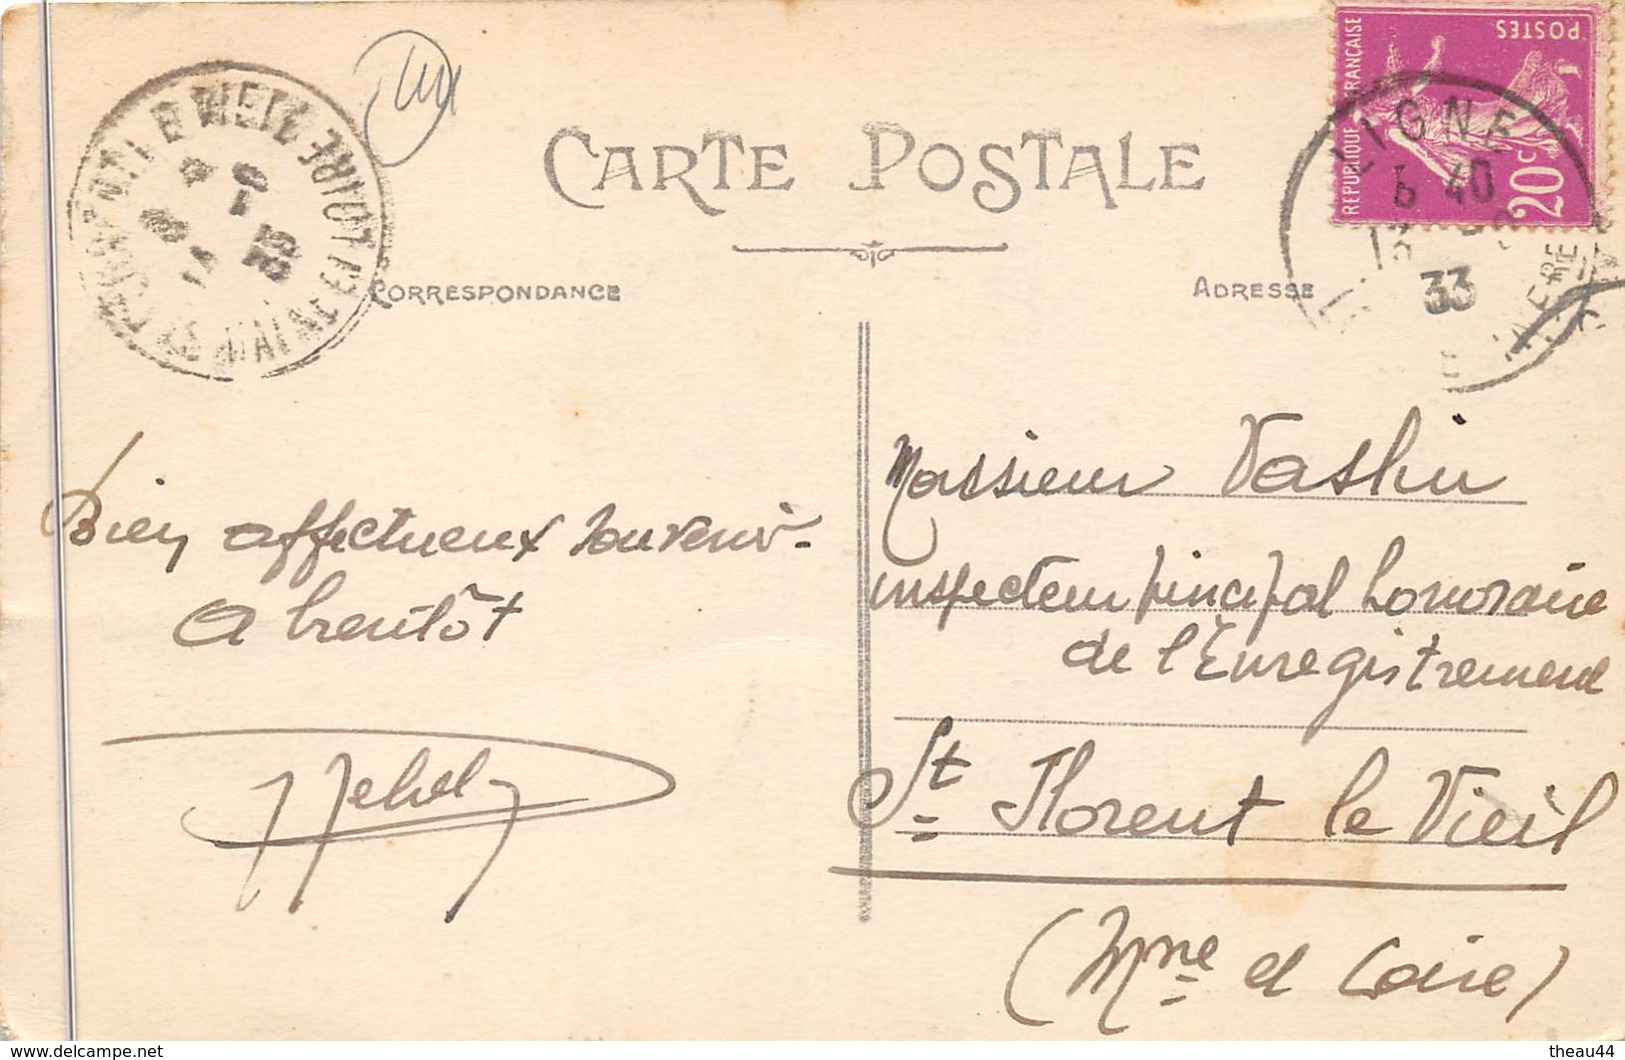 CARTE POSTALE
CORRESPONDANCE
ADRESSE
REPUBLIQUE FRANÇAISE
POSTES
20c
LIGNE
6 40
13
33
LOIRE INFERE
Bien affectueux souvenir.
A bientôt
Monsieur Vaslin
inspecteur principal honoraire
de l'Enregistrement
St Florent le Vieil
(Mne et Loire)
www.delcampe.net
theau44